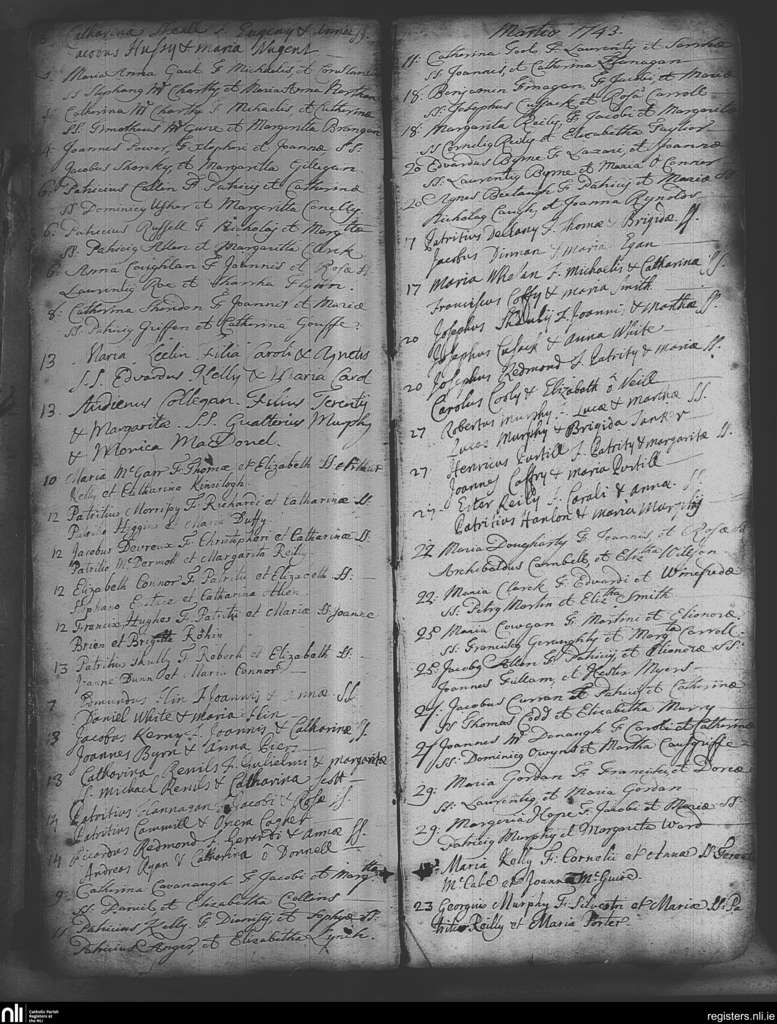 Catharina Skall F. Eugeny & Annæ SS.
Jacobus Hussy & Maria Nugent
Maria Anna Gaul F. Michaelis, et
SS. Stephang Mc Charthy, et Maria Anna
Catherina Mc Charthy F. Michaelis, et Catherinæ
SS. Timotheus Mc Guire et Margarita Brangan
4 Joannes Power, F. Stephni et Joannæ SS.
Jacobus Shonky, et Margaritta Gillegan.
6. Patricius Cullen F. Patricy et Catherinæ
SS. Dominicg Usher et Margeritta Conelly
6. Patricius Russell F. Nicholaj et Margittæ
SS. Patricig Allen et Margaritta Clerck
6. Anna Coughlan F. Joannis et Rosæ SS.
Laurentig Roe et Martha Flynn.
8. Catherina Shendon F. Joannis et Mariæ
SS. Patricig Griffen et Catherina Gouffe
13 Maria Leelin Filia Caroli & Agnetis
S.S. Edvardus Kelly & Maria Carol
13. Audienus Collegan. Filius Terentij
& Margaritæ. SS. Gualterius Murphy
& Monica MacDonel.
10 Maria McGarr F. Thomæ et Elizabeth SS
Kelly et Catharina Kinselogh
12 Patritius Morrisy F. Richardi et Catharinæ SS.
Patritio Higgins et Maria Duffy
12 Jacobus Devreux F. Christophori et Catharinæ SS.
Patritio McDermott et Margarita Reily
12 Elizabeth Connor F. Patritii et Elizabeth SS:
Stephano et Catharina Allen
12 Francis Hughes F. Patritii et Mariæ SS Joanne
Brien et Brigitta
13 Patritius Skully F. Roberti et Elizabeth SS.
Joanne Dunn et Maria Connor
7 Edmundus Flin F Joannis & Annæ SS.
Daniel White & Maria Flin
13 Jacobus Kerny F. Joannis & Catharinæ SS
Joannes Byrn & Anna
13 Catharina Renils F. Gulielmi & margaritæ
S. Michael Renils & Catharina Scott
14 Patritius Flannagan F. Jacobi & Rosæ SS.
Patritius Cammill &
14 Ricardus Redmond F. Gerardi & annæ SS.
Andreas Ryan & Catharina ô Donnell
9. Catherina Cavanagh F. Jacobi et Margttæ
SS. Daniel et Elizabetha Collins
11 Patricius Kelly. F. Dionysy et Sophiæ SS.
Patricius Anger, et Elizabetha Lynch.
Martio 1743.
11. Catherina Gool F. Laurenty et
SS. Joannis, et Catherina Flanagan
18. Benjamin Finagan. F. Jacobi, et Mariæ
SS. Josephus Cussack et Rosa Carroll
18. Margarita Reily F. Jacobi et Margaritæ
SS. Cornelig Reily et Elizabetha Taylior
20 Edvardus Byrne F. Lazari, et Joannæ
SS. Laurentig Byrne et Maria O Connor
20 Agnes F. Patricy et Mariæ SS
Nicholag Caugh, et Joanna Reynolds
7 Patritius Dellany F. Thomæ & Brigidæ SS.
Jacobus Dinnan & Maria Egan
17 Maria Whelan F. Michaelis & Catharinæ SS.
Franciscus Coffy & Maria Smith.
20 Josephus F. Joannis, & Marthæ SS.
Josephus Cusack & Anna White
20 Josephus Redmond F. Patritij & mariæ SS.
Carolus Cooly & Elizabeth ô Neill
27 Robertus Murphy F. Lucæ & Marthæ SS.
Lucas Murphy & Brigida
27. Henricus Purtill F. Patritij & margaritæ SS.
Joannes Caffry & maria Purtill
27. Ester Reily F. Caroli & anna. SS.
Patricius Hanlon & Maria Murphy
22 Maria Dougharty F. Joannis, et Rosæ SS
Archibaldus Cambell, et Elizetha Wilson
22. Maria Clerck F. Edvardi et Winefridæ
SS. Petrg Martin et Elizetha Smith
25. Maria Cowgan F. Martini et Elionoræ.
SS. Franciscg Geraughty et Margta Carroll.
25. Jacobg Allen F. Patricij, et Elionoræ SS.
Joannes Fullam, et Hester Myers
27. Jacobus Curran F. Patricij et Catherinæ
SS Thomas Codd et Elizabetha Murry
27 Joannes Mc Donaugh F. Caroli et Catherinæ
SS. Dominicg Owyns et Martha
29. Maria Gordan F. Francisci, et Doreæ
SS: Laurentig et Maria Gordan
29. Margeria Hope F. Jacobi et Mariæ SS
Patricig Murphy, et Margarita Ward
Maria Kelly F. Cornelii et Annæ SS
McCabe et Joanna McGuire
23 Georgius Murphy F. Silvestri et Mariæ SS. Pa
tritio Reilly et Maria Porter.
nli
Catholic Parish
Registers at
the NLI
registers.nli.ie